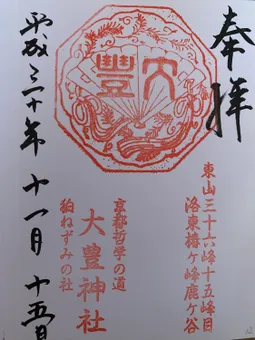 奉拝
東山三十六峰十五峰目
洛東椿ヶ峰鹿ヶ谷
大豐
京都哲学の道
大豊神社
狛ねずみの社
平成三十年十一月十五日